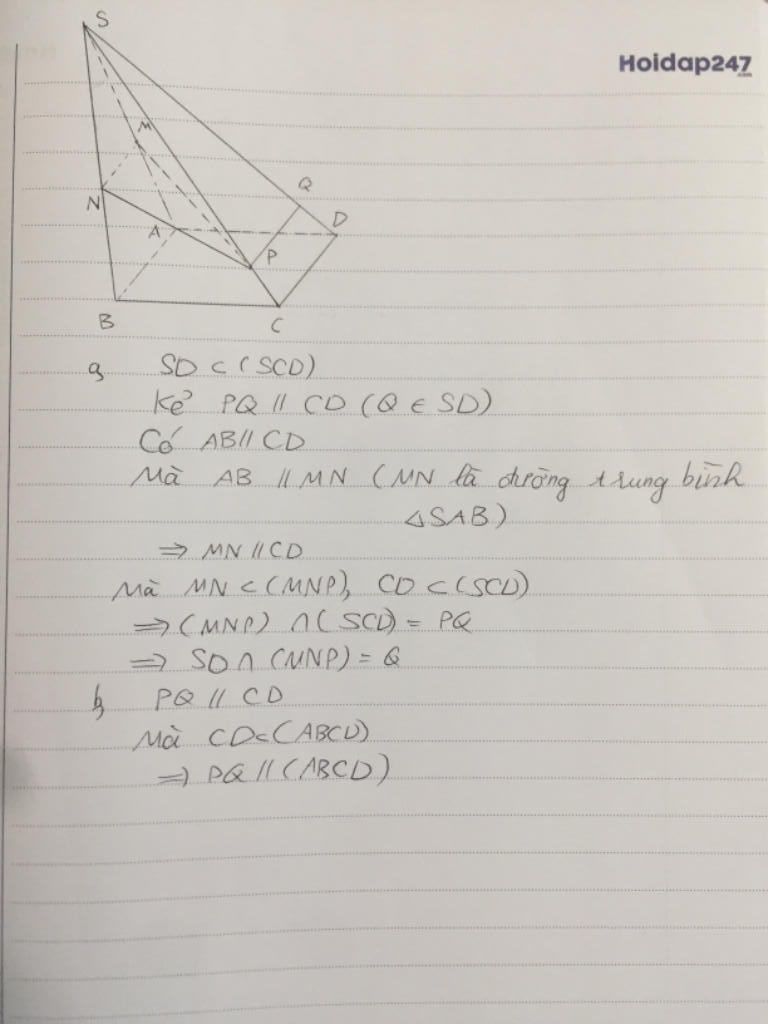 S
Hoidap247
.com
M
Q
N
D
A
P
B
C
a, SD ⊂ (SCD)
Kẻ PQ // CD (Q ∈ SD)
Có AB // CD
Mà AB // MN (MN là đường trung bình
△SAB)
⇒ MN // CD
Mà MN ⊂ (MNP), CD ⊂ (SCD)
⇒ (MNP) ∩ (SCD) = PQ
⇒ SD ∩ (MNP) = Q
b, PQ // CD
Mà CD ⊂ (ABCD)
⇒ PQ // (ABCD)